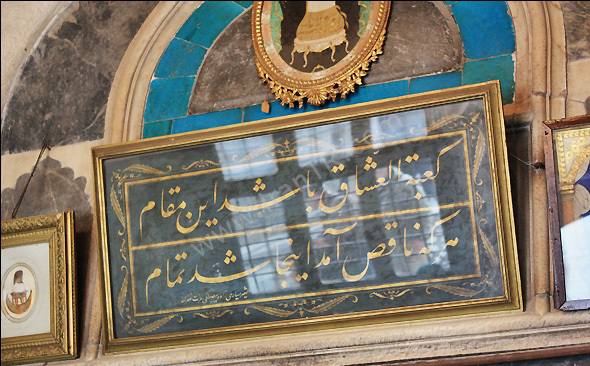 كعبة العشاق باشد این مقام
هر که ناقص آمد اینجا شد تمام